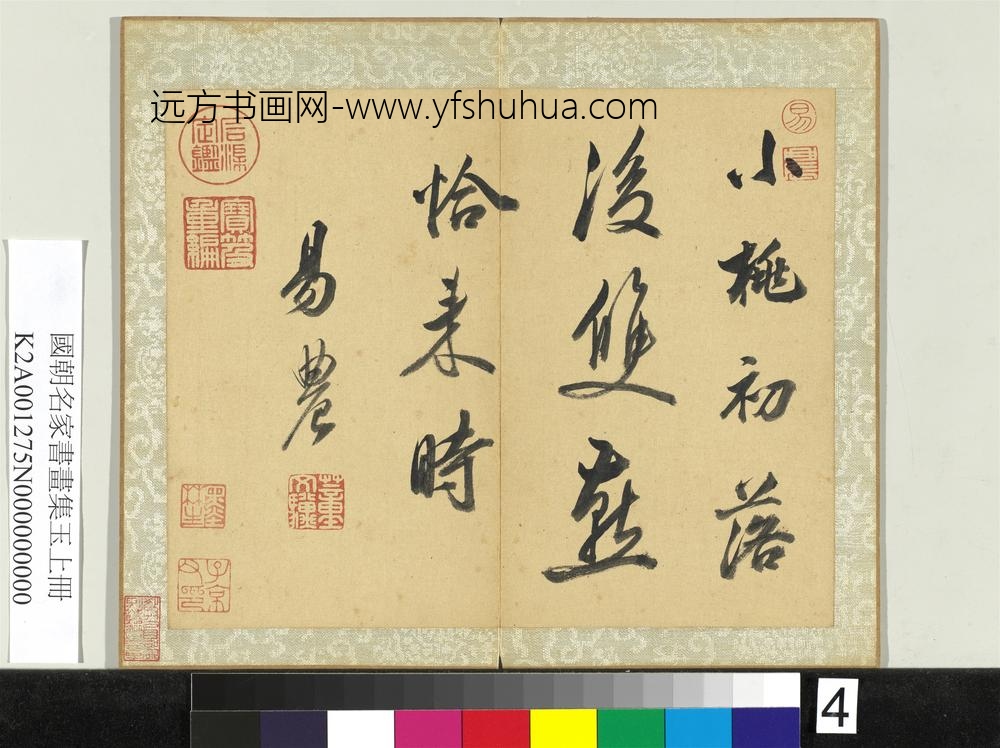 远方书画网-www.yfshuhua.com
小桃初落
後雙燕
恰来時
易農
董
文驥
寶笈
重編
石渠
定鑑
國朝名家書畫集玉上冊
K2A001275N000000000
4